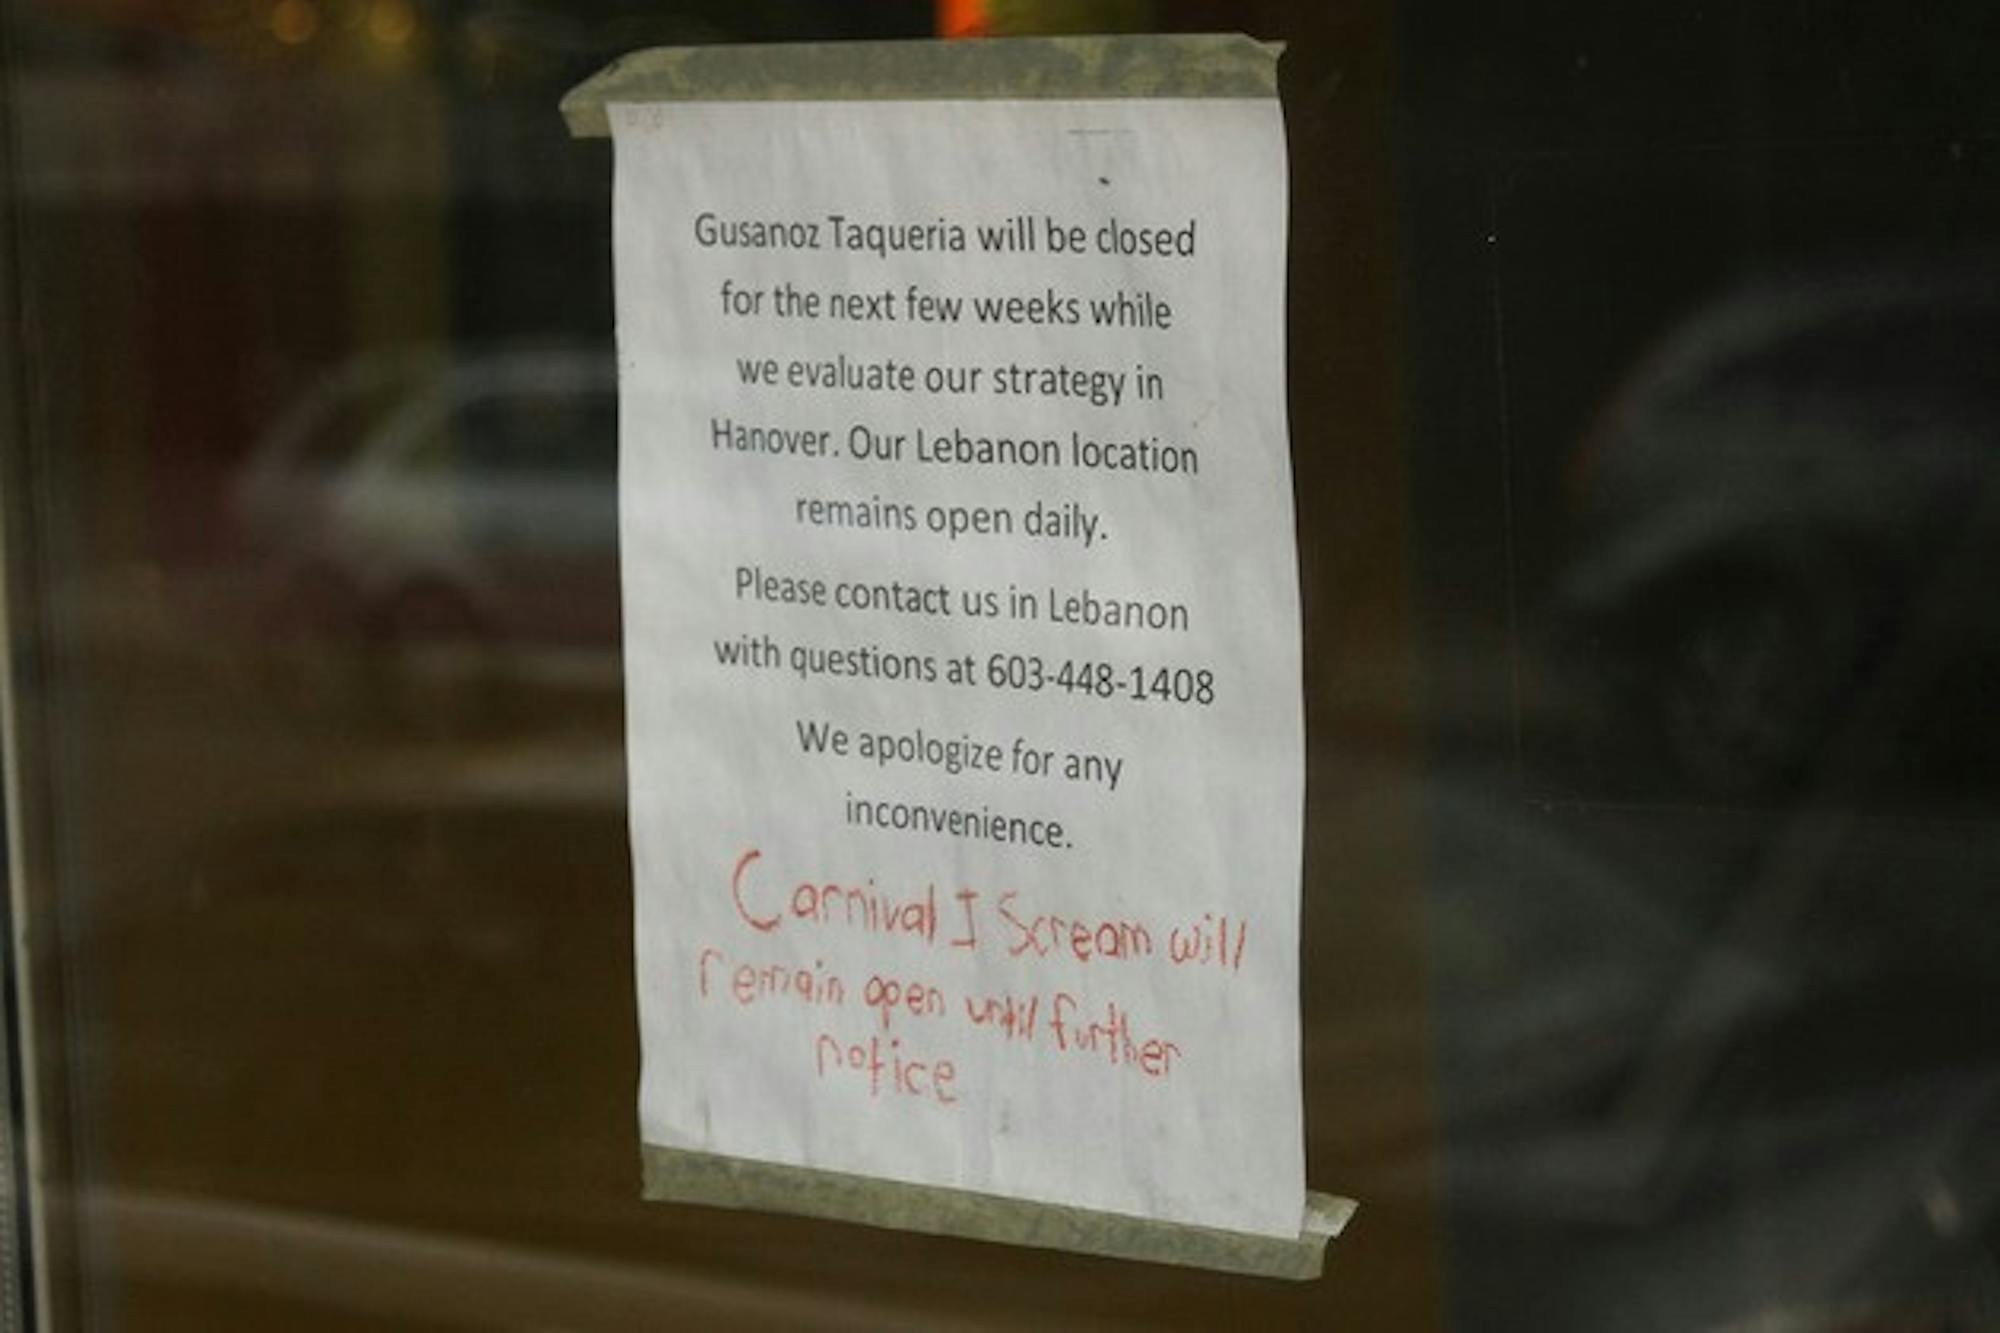 Gusanoz Taqueria will be closed
for the next few weeks while
we evaluate our strategy in
Hanover. Our Lebanon location
remains open daily.
Please contact us in Lebanon
with questions at 603-448-1408
We apologize for any
inconvenience.
Carnival I Scream will
remain open until further
notice